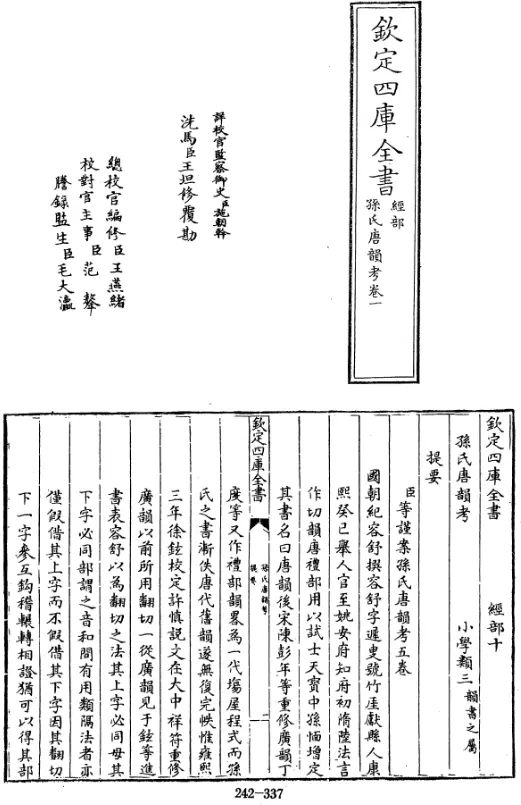 欽定四庫全書
經部
孫氏唐韻考卷一
詳校官監察御史臣施朝幹
洗馬臣王坦修覆勘
總校官編修臣王燕緒
校對官主事臣范鏊
謄錄監生臣毛大瀛
欽定四庫全書 經部十
孫氏唐韻考 小學類三 韻書之屬
提要
臣等謹案孫氏唐韻考五卷
國朝紀容舒撰容舒字遲叟號竹厓獻縣人康
熙癸巳舉人官至姚安府知府初隋陸法言
作切韻唐禮部用以試士天寶中孫愐增定
其書名曰唐韻後宋陳彭年等重修廣韻丁
欽定四庫全書
孫氏唐韻考
提要
一
度等又作禮部韻畧為一代塲屋程式而孫
氏之書漸佚唐代舊韻遂無復完帙惟雍熙
三年徐鉉校定許慎說文在大中祥符重修
廣韻以前所用翻切一從唐韻見于鉉等進
書表容舒以為翻切之法其上字必同母其
下字必同部謂之音和間有用類隔法者亦
僅假借其上字而不假借其下字因其翻切
下一字參互鈎稽輾轉相證猶可以得其部
242-337